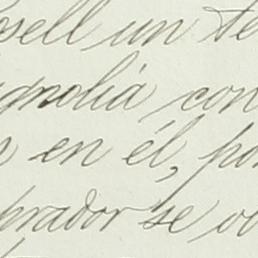 osell un te
gnolia con
en él, po
prador se o